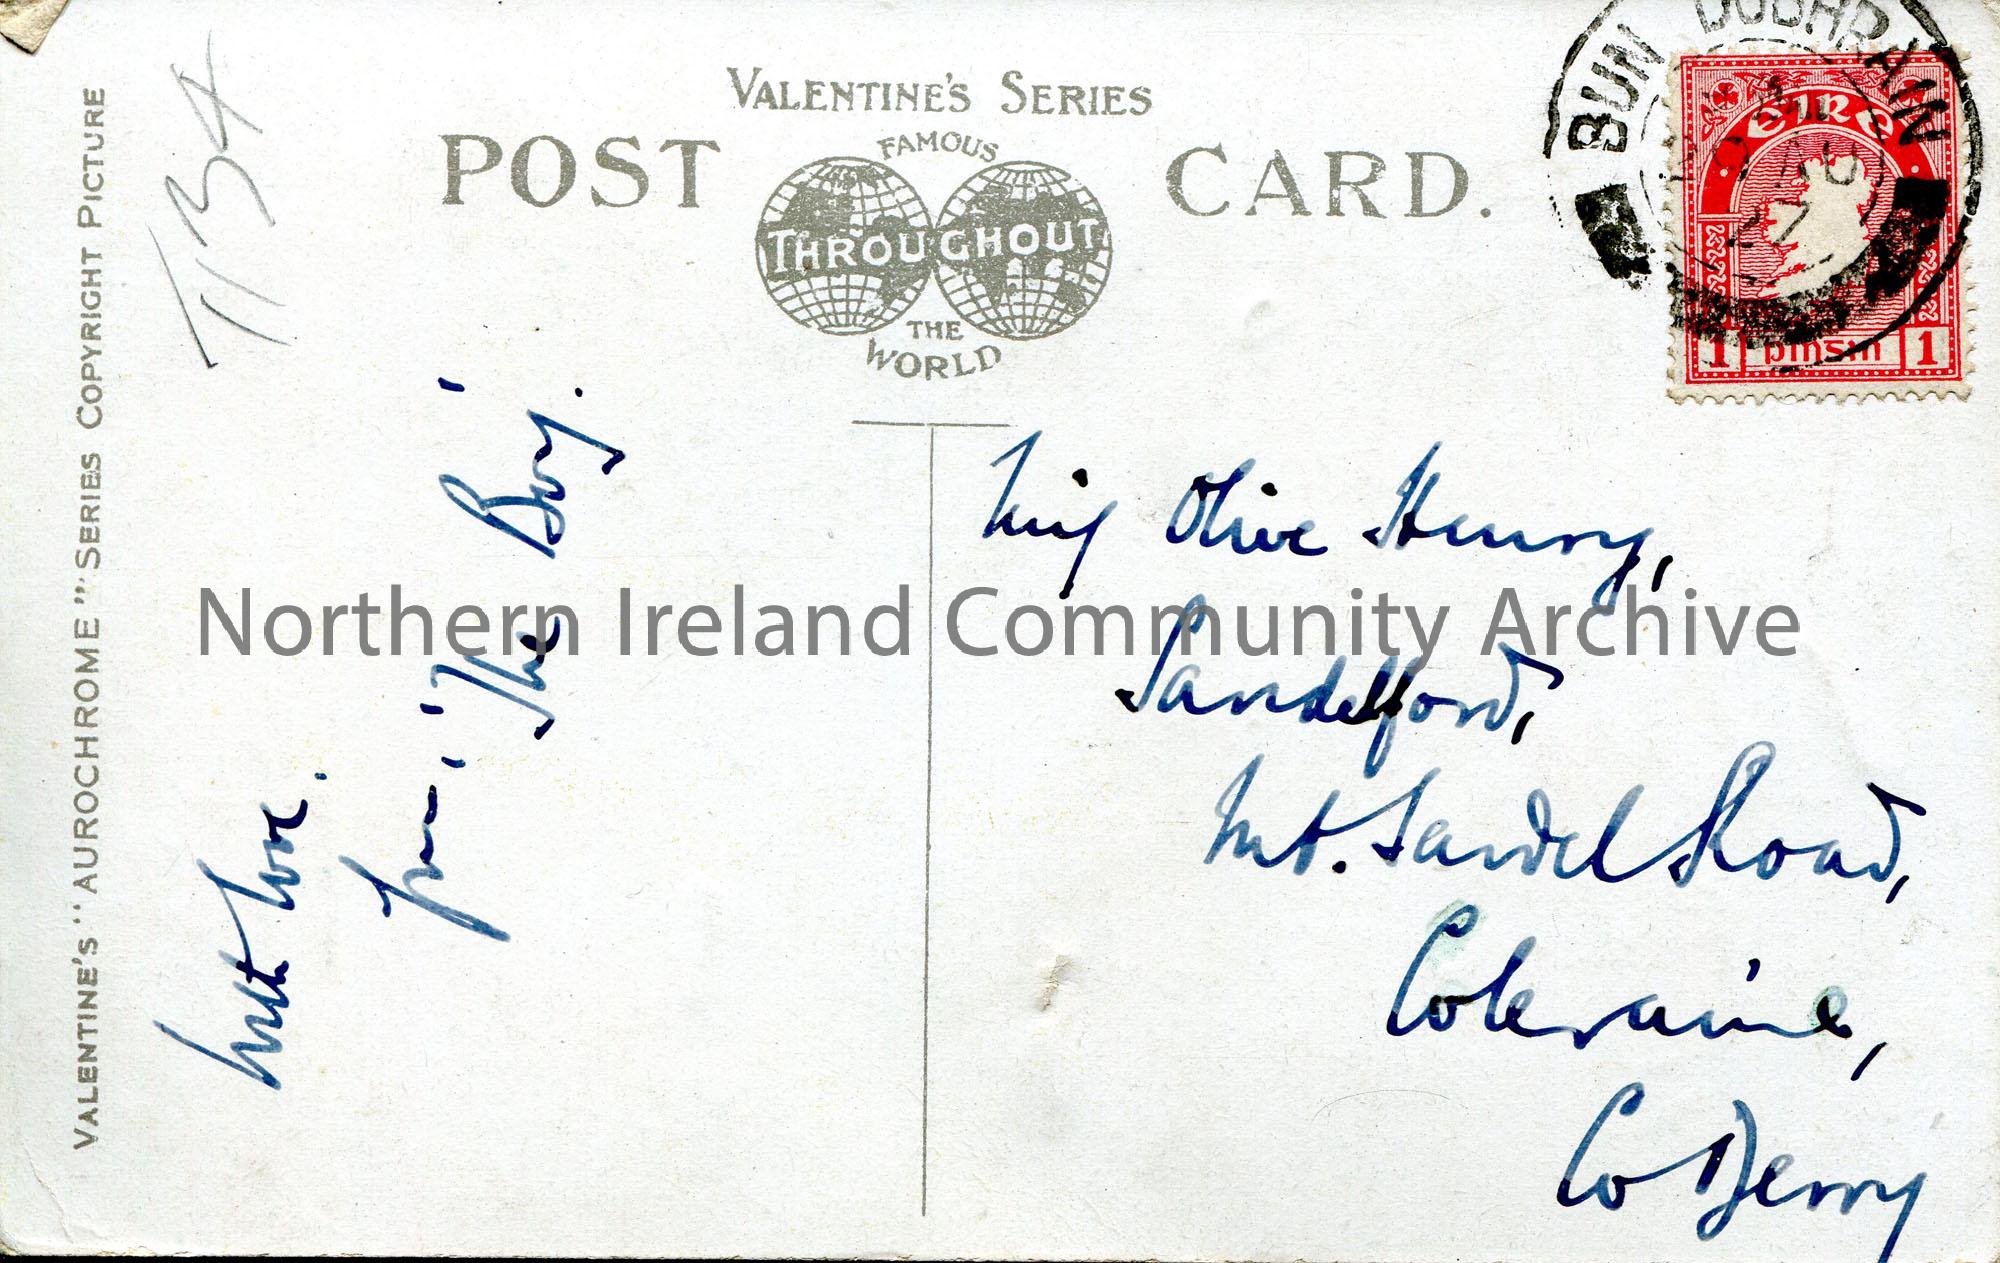 VALENTINE'S SERIES
POST CARD.
FAMOUS
THROUGHOUT
THE
WORLD
VALENTINE'S "AUROCHROME" SERIES COPYRIGHT PICTURE
BUN DOBHRÁIN
27
éire
1 pinsin 1
With love.
from 'The Boy'.
Miss Olive Henry,
Sandelford,
Mt. Sandel Road,
Coleraine,
Co Derry
Northern Ireland Community Archive